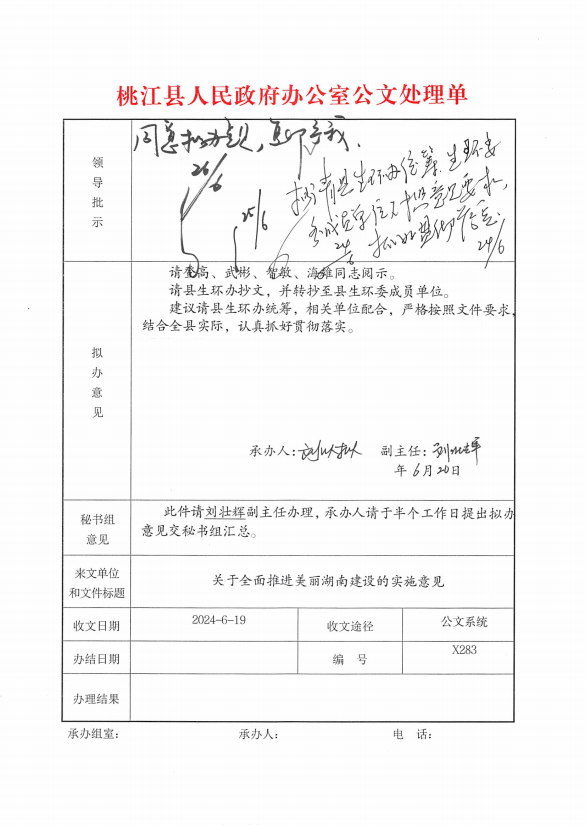 桃江县人民政府办公室公文处理单
领导批示
同意拟办意见,
26/6
25/6
24/6
24/6
请奎高、武彬、智敏、海雄同志阅示。
请县生环办抄文,并转抄至县生环委成员单位。
建议请县生环办统筹,相关单位配合,严格按照文件要求,
结合全县实际,认真抓好贯彻落实。
拟办意见
承办人:
副主任:
年 6月20日
秘书组意见
此件请刘壮辉副主任办理,承办人请于半个工作日提出拟办
意见交秘书组汇总。
来文单位和文件标题
关于全面推进美丽湖南建设的实施意见
收文日期 2024-6-19 收文途径 公文系统
办结日期 编 号 X283
办理结果
承办组室: 承办人: 电 话: